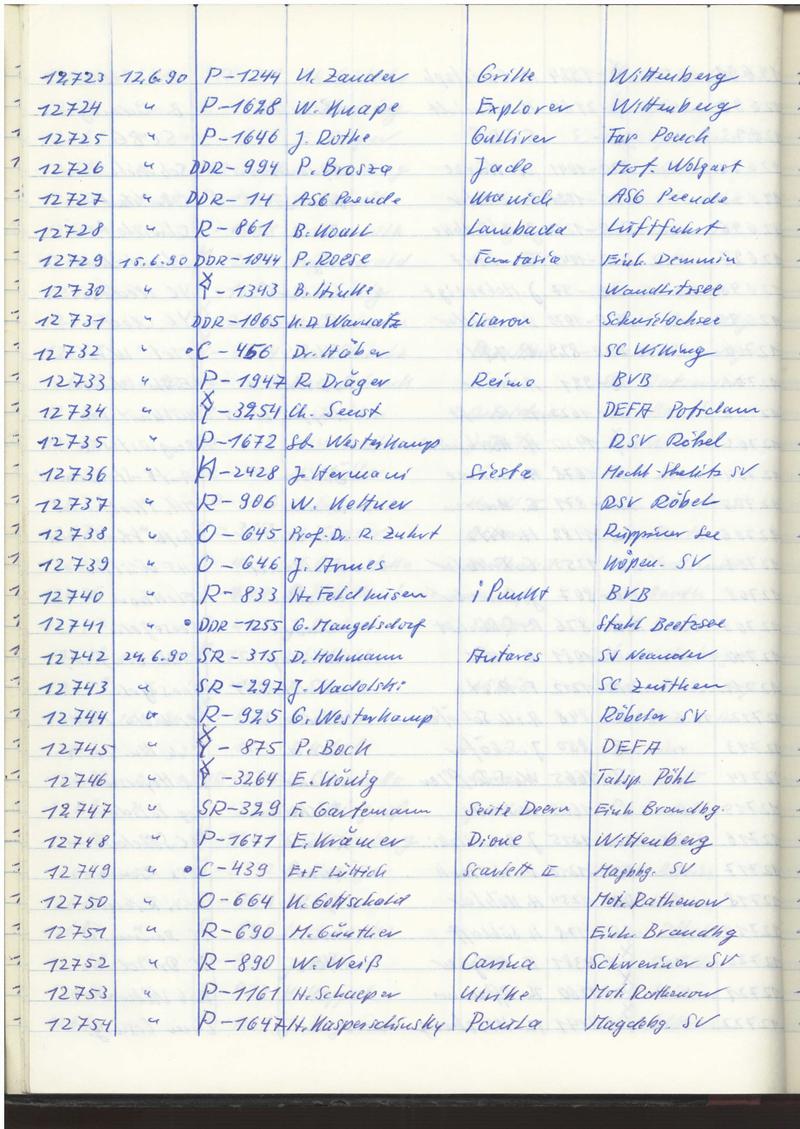 12723 12.6.90 P-1244 U. Zander Grille Wittenberg
12724 " P-1628 W. Knape Explorer Wittenberg
12725 " P-1646 J. Rothe Gulliver Far Pouch
12726 " DDR-994 P. Brosza Jade Mot. Wolgast
12727 " DDR-14 ASG Peende ASG Peende
12728 " R-861 B. Lambada Luftfahrt
12729 15.6.90 DDR-1044 P. Roese Fantasia Einh. Demmin
12730 " -1343 B. Hinke Wandlitzsee
12731 " DDR-1065 Charon Schwielochsee
12732 " C-456 Dr. Häber SC Wiking
12733 " P-1947 R. Dräger Reimo BVB
12734 " -3254 Ch. Senst DEFA Potsdam
12735 " P-1672 Westerkamp RSV Röbel
12736 " H-2428 J. Hermani Siesta SV
12737 " R-906 W. Kettner RSV Röbel
12738 " O-645 Prof. Dr. R. Zuhrt Ruppiner See
12739 " O-646 J. Armes Köpen. SV
12740 " R-833 H. Feldhusen i Punkt BVB
12741 " DDR-1255 G. Mangelsdorf Stahl Beetzsee
12742 24.6.90 SR-315 D. Hohmann Antares SV Neander
12743 " SR-297 J. Nadolski SC Zeuthen
12744 " R-925 G. Westerkamp Röbeler SV
12745 " -875 P. Boch DEFA
12746 " -3264 E. König Talsp. Pöhl
12747 " SR-329 F. Gartemann Seute Deern Einh. Brandbg.
12748 " P-1671 E. Krämer Dione Wittenberg
12749 " C-439 E+F Lüttich Scarlett II Magdbg. SV
12750 " O-664 K. Gottschald Mot. Rathenow
12751 " R-690 M. Günther Einh. Brandbg
12752 " R-890 W. Weiß Carina Schweriner SV
12753 " P-1161 H. Schaeper Ulrike Mot. Rathenow
12754 " P-1647 H. Kasperschinsky Paula Magdebg. SV